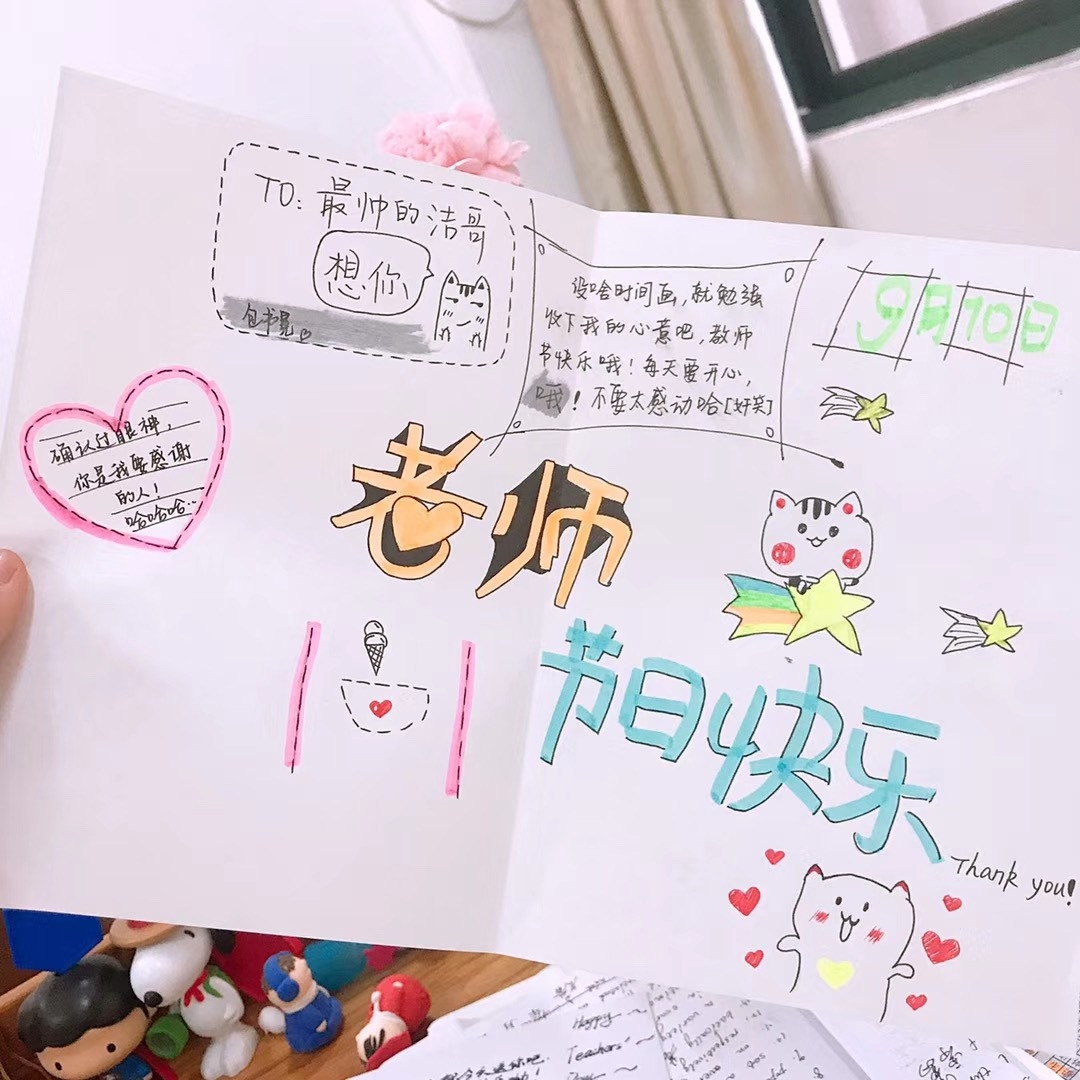 TO: 最帅的洁哥
想你
没啥时间画，就勉强
收下我的心意吧，教师
节快乐哦！每天要开心，
哦！不要太感动哈[奸笑]
9月10日
确认过眼神，
你是我要感谢
的人！
哈哈哈..
老师
节日快乐
Thank you!
Happy ~
Teachers'